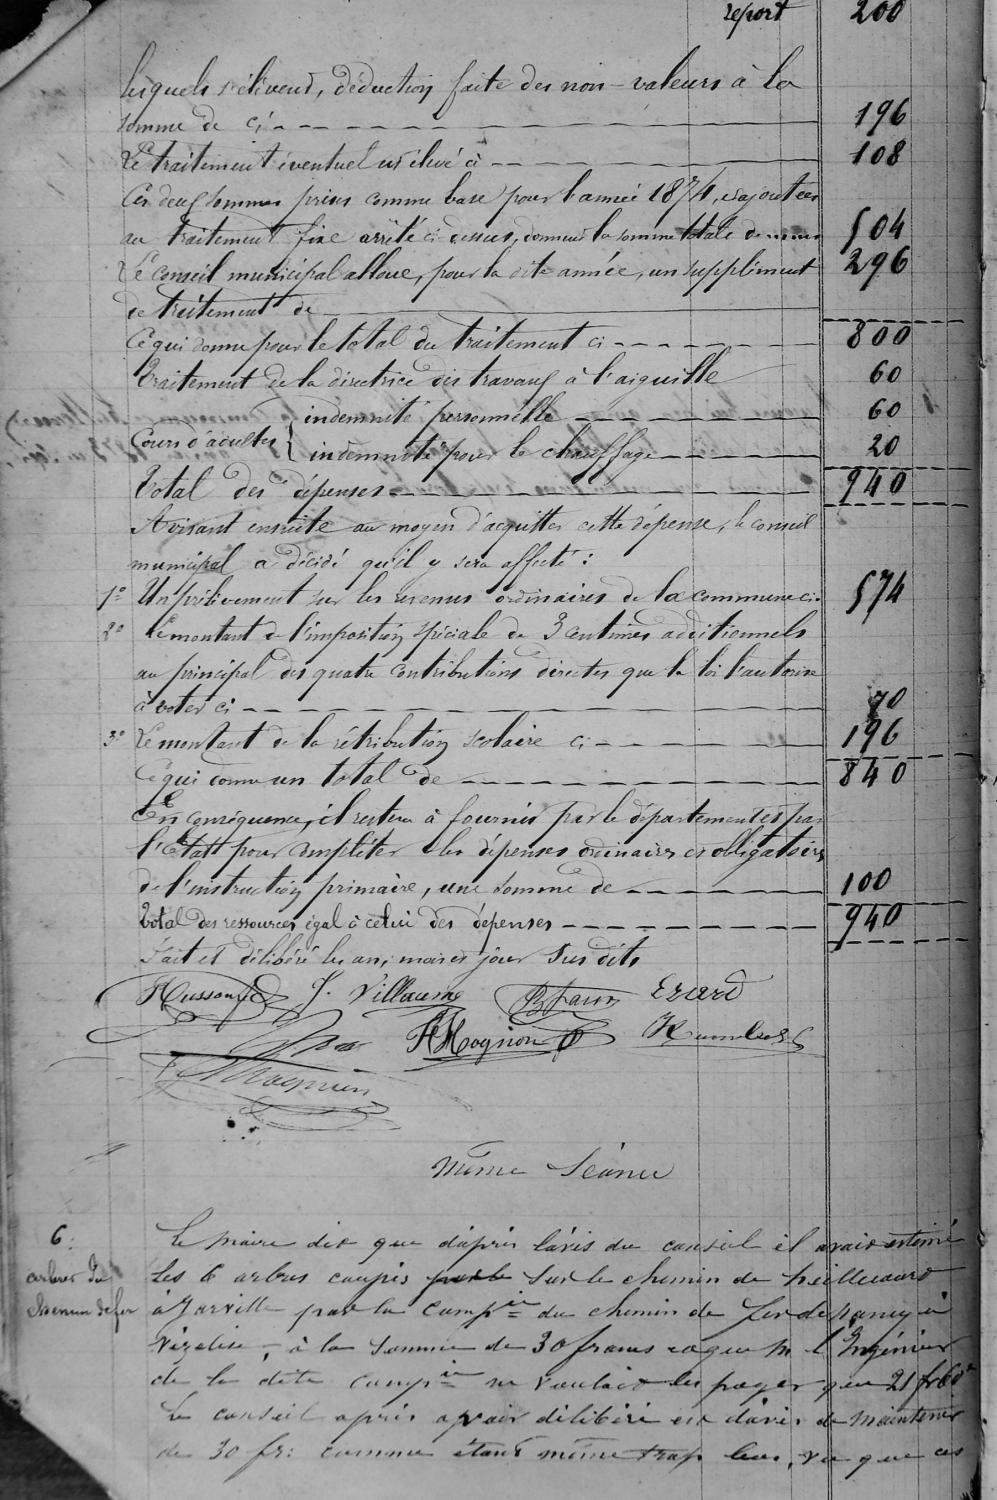 report 200
lesquels s'élèvent, déduction faite des non-valeurs à la
somme de ci 196
Le traitement éventuel est élevé à 108
Ces deux sommes prises comme base pour l'année 1874, et ajoutées
au traitement fixe arrêté ci-dessus, donnent la somme totale de 504
Le conseil municipal alloue, pour la dite année, un supplément 296
de traitement de
Ce qui donne pour le total du traitement ci 800
Traitement de la directrice des travaux à l'aiguille 60
Cours d'adultes { indemnité personnelle 60
indemnité pour le chauffage 20
Total des dépenses 940
Avisant ensuite au moyen d'acquitter cette dépense, le conseil
municipal a décidé qu'il y sera affecté :
1º Un prélèvement sur les revenus ordinaires de la commune ci 574
2º Le montant de l'imposition spéciale de 3 centimes additionnels
au principal des quatre contributions directes que la loi l'autorise
à voter ci 70
3º Le montant de la rétribution scolaire ci 196
Ce qui donne un total de 840
En conséquence, il restera à fournir par le département et par
l'Etat pour compléter les dépenses ordinaires et obligatoires
de l'instruction primaire, une somme de 100
Total des ressources égal à celui des dépenses 940
Fait et délibéré les an, mois et jour susdits
Husson J. Villaume Erard
H Mognon Humbert
Même Séance
6. Le maire dit que d'après l'avis du conseil il avait estimé
arbres du les 6 arbres coupés sur le chemin de heillecourt
chemin de fer à Jarville par la Campie du chemin de fer de Nancy à
Vézelise, à la somme de 30 francs et que M l'Ingénieur
de la dite Campie ne voulait les payer que 21 fr 60c
Le conseil après avoir délibéré est d'avis de maintenir
de 30 fr: comme étant même trop bas, vu que ces